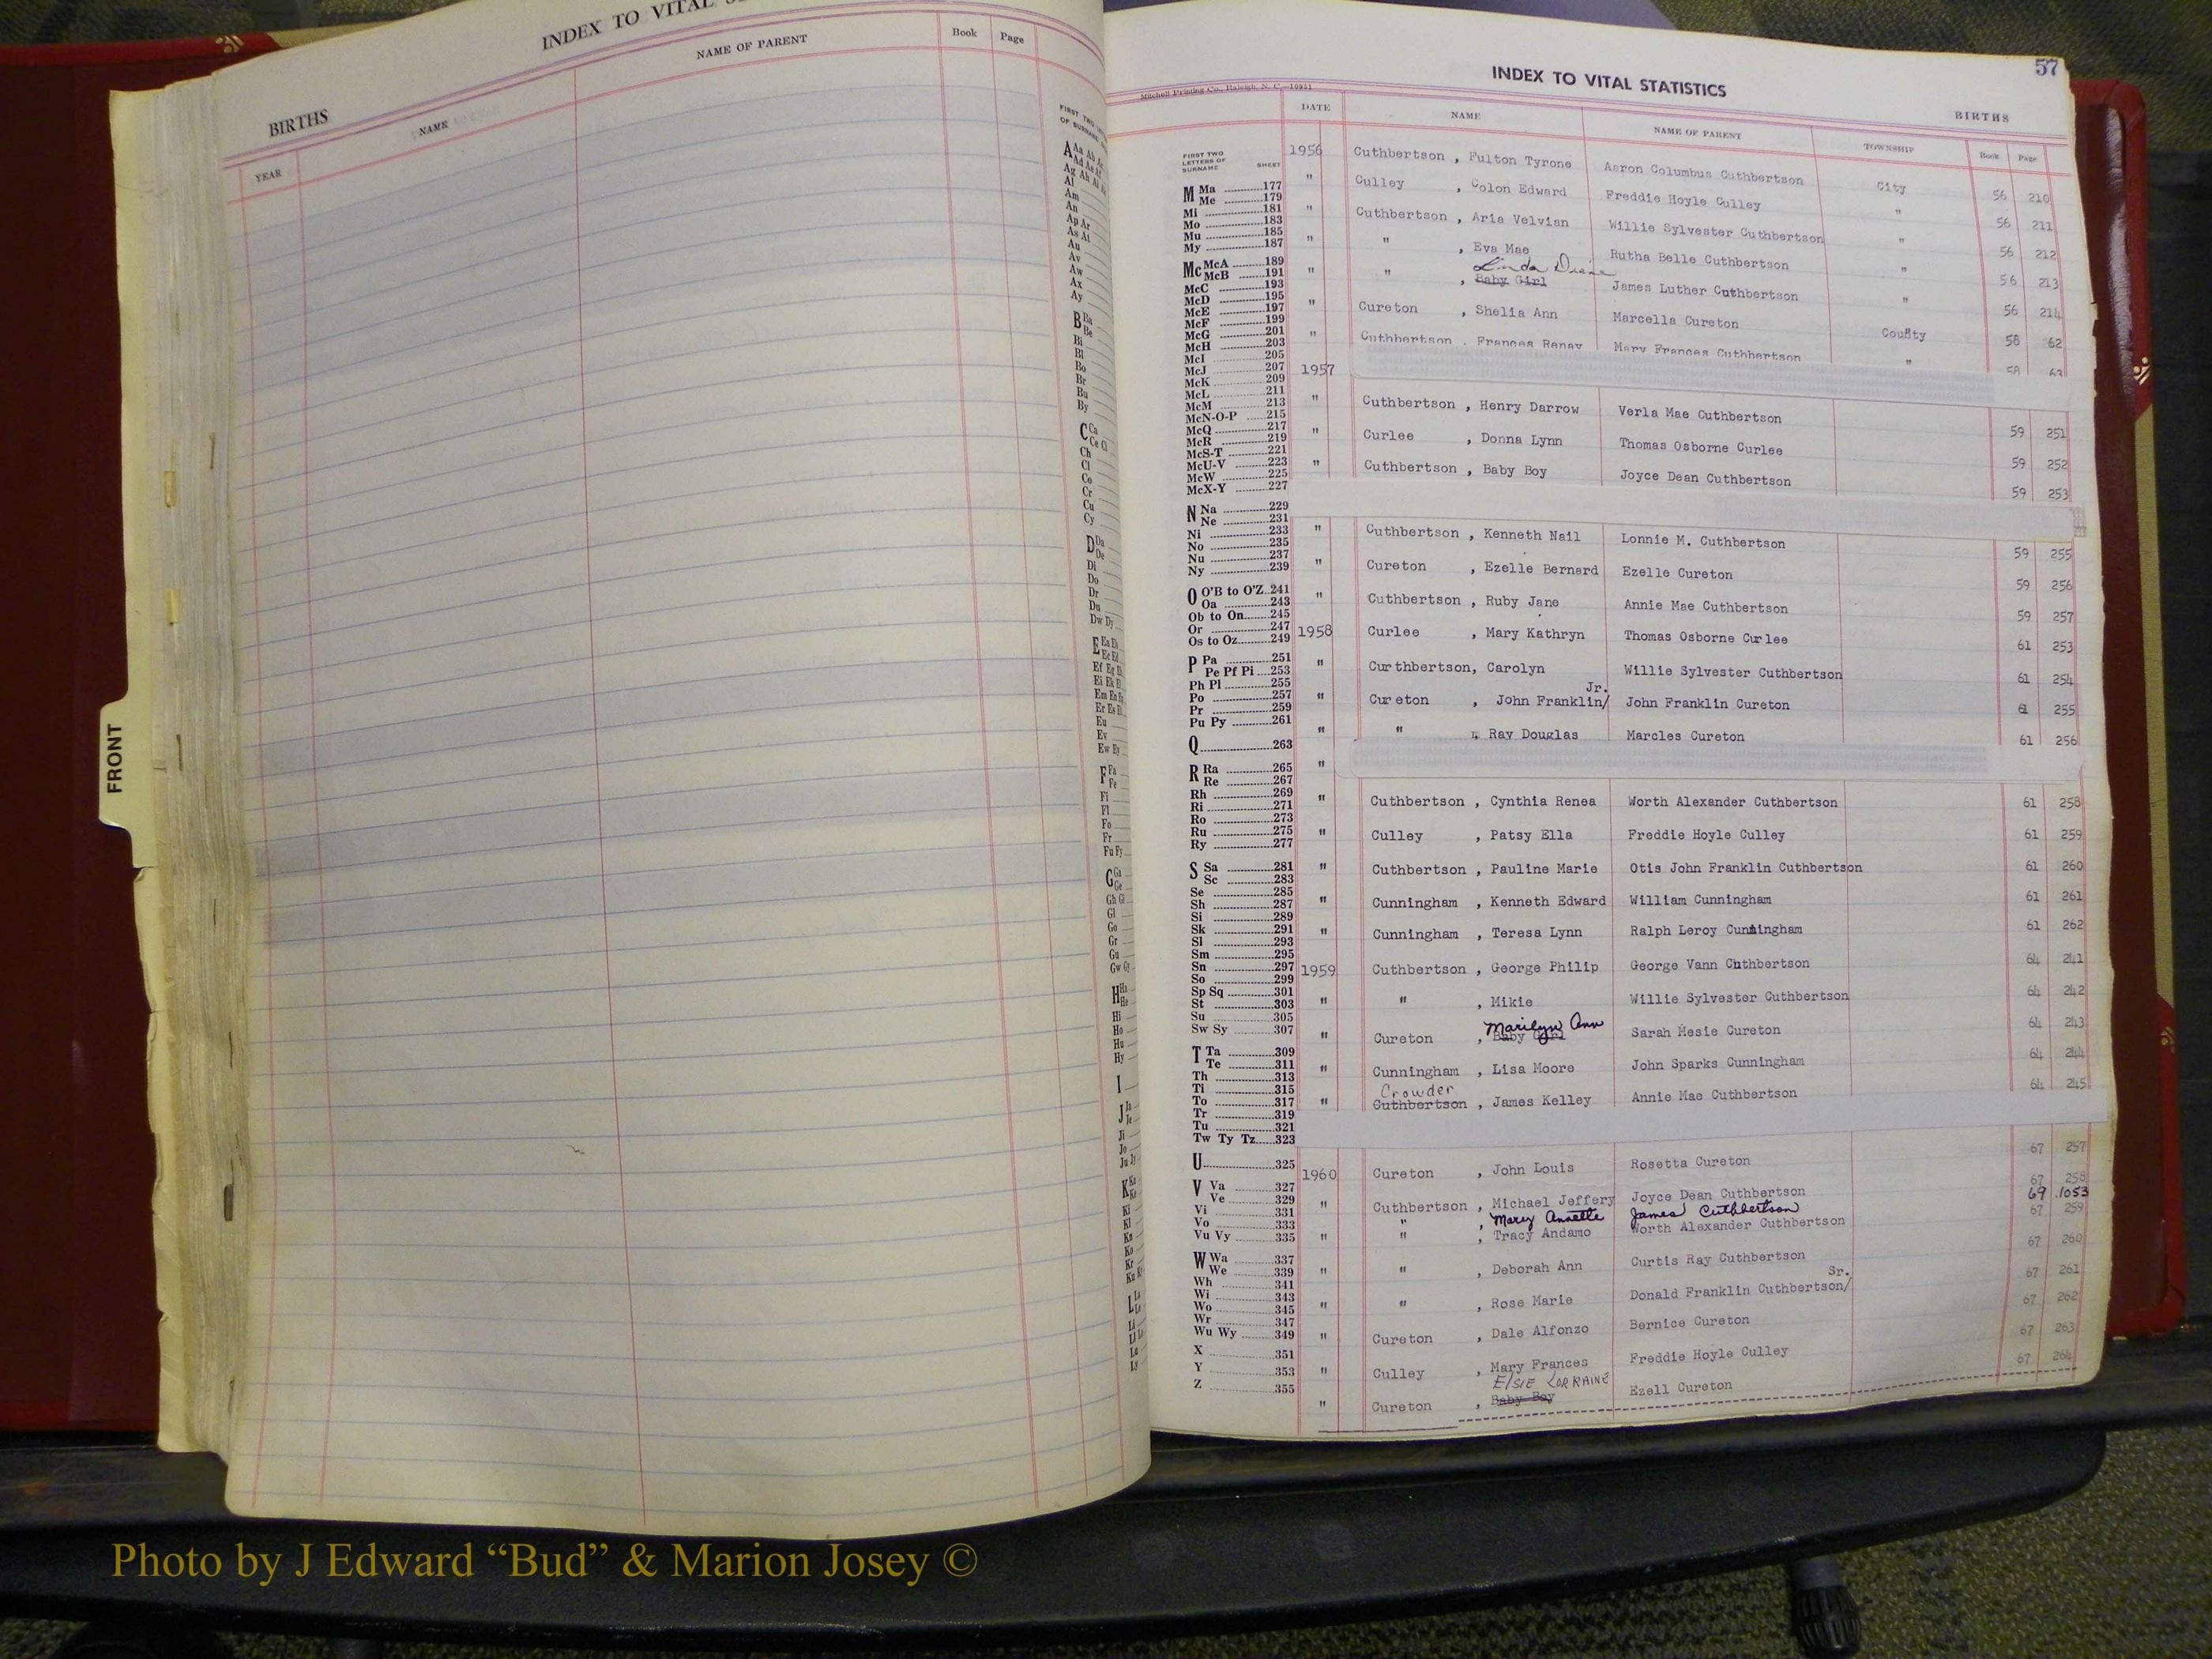 INDEX TO VITAL
BIRTHS
YEAR NAME NAME OF PARENT Book Page
FRONT
57
INDEX TO VITAL STATISTICS
Mitchell Printing Co., Raleigh, N. C.—10951
BIRTHS
DATE NAME NAME OF PARENT TOWNSHIP Book Page
FIRST TWO LETTERS OF SURNAME SHEET
M Ma 177
Me 179
Mi 181
Mo 183
Mu 185
My 187
Mc McA 189
McB 191
McC 193
McD 195
McE 197
McF 199
McG 201
McH 203
McI 205
McJ 207
McK 209
McL 211
McM 213
McN-O-P 215
McQ 217
McR 219
McS-T 221
McU-V 223
McW 225
McX-Y 227
N Na 229
Ne 231
Ni 233
No 235
Nu 237
Ny 239
O O'B to O'Z 241
Oa 243
Ob to On 245
Or 247
Os to Oz 249
P Pa 251
Pe Pf Pi 253
Ph Pl 255
Po 257
Pr 259
Pu Py 261
Q 263
R Ra 265
Re 267
Rh 269
Ri 271
Ro 273
Ru 275
Ry 277
S Sa 281
Sc 283
Se 285
Sh 287
Si 289
Sk 291
Sl 293
Sm 295
Sn 297
So 299
Sp Sq 301
St 303
Su 305
Sw Sy 307
T Ta 309
Te 311
Th 313
Ti 315
To 317
Tr 319
Tu 321
Tw Ty Tz 323
U 325
V Va 327
Ve 329
Vi 331
Vo 333
Vu Vy 335
W Wa 337
We 339
Wh 341
Wi 343
Wo 345
Wr 347
Wu Wy 349
X 351
Y 353
Z 355
1956 Cuthbertson , Fulton Tyrone Aaron Columbus Cuthbertson City 56 210
" Culley , Colon Edward Freddie Hoyle Culley " 56 211
" Cuthbertson , Aria Velvian Willie Sylvester Cuthbertson " 56 212
" " , Eva Mae Rutha Belle Cuthbertson " 56 213
Linda Diane
" " , Baby Girl James Luther Cuthbertson " 56 214
" Cureton , Shelia Ann Marcella Cureton County 58 62
" Cuthbertson , Frances Renay Mary Frances Cuthbertson " 58 63
1957
" Cuthbertson , Henry Darrow Verla Mae Cuthbertson 59 251
" Curlee , Donna Lynn Thomas Osborne Curlee 59 252
" Cuthbertson , Baby Boy Joyce Dean Cuthbertson 59 253
" Cuthbertson , Kenneth Nail Lonnie M. Cuthbertson 59 255
" Cureton , Ezelle Bernard Ezelle Cureton 59 256
" Cuthbertson , Ruby Jane Annie Mae Cuthbertson 59 257
1958 Curlee , Mary Kathryn Thomas Osborne Curlee 61 253
" Curthbertson, Carolyn Willie Sylvester Cuthbertson 61 254
Jr.
" Cureton , John Franklin/ John Franklin Cureton 61 255
" " , Ray Douglas Marcles Cureton 61 256
"
" Cuthbertson , Cynthia Renea Worth Alexander Cuthbertson 61 258
" Culley , Patsy Ella Freddie Hoyle Culley 61 259
" Cuthbertson , Pauline Marie Otis John Franklin Cuthbertson 61 260
" Cunningham , Kenneth Edward William Cunningham 61 261
" Cunningham , Teresa Lynn Ralph Leroy Cunningham 61 262
1959 Cuthbertson , George Philip George Vann Cuthbertson 64 241
" " , Mikie Willie Sylvester Cuthbertson 64 242
Marilyn Ann
" Cureton , Baby Girl Sarah Mesie Cureton 64 243
" Cunningham , Lisa Moore John Sparks Cunningham 64 244
Crowder
" Cuthbertson , James Kelley Annie Mae Cuthbertson 64 245
1960 Cureton , John Louis Rosetta Cureton 67 257
" Cuthbertson , Michael Jeffery Joyce Dean Cuthbertson 67 258
" , Mary Annette James Cuthbertson 69 1053
" " , Tracy Andamo Worth Alexander Cuthbertson 67 259
" " , Deborah Ann Curtis Ray Cuthbertson 67 260
Sr.
" " , Rose Marie Donald Franklin Cuthbertson/ 67 261
" Cureton , Dale Alfonzo Bernice Cureton 67 262
" Culley , Mary Frances Freddie Hoyle Culley 67 263
ELSIE LORRAINE
" Cureton , Baby Boy Ezell Cureton 67 264
Photo by J Edward “Bud” & Marion Josey ©